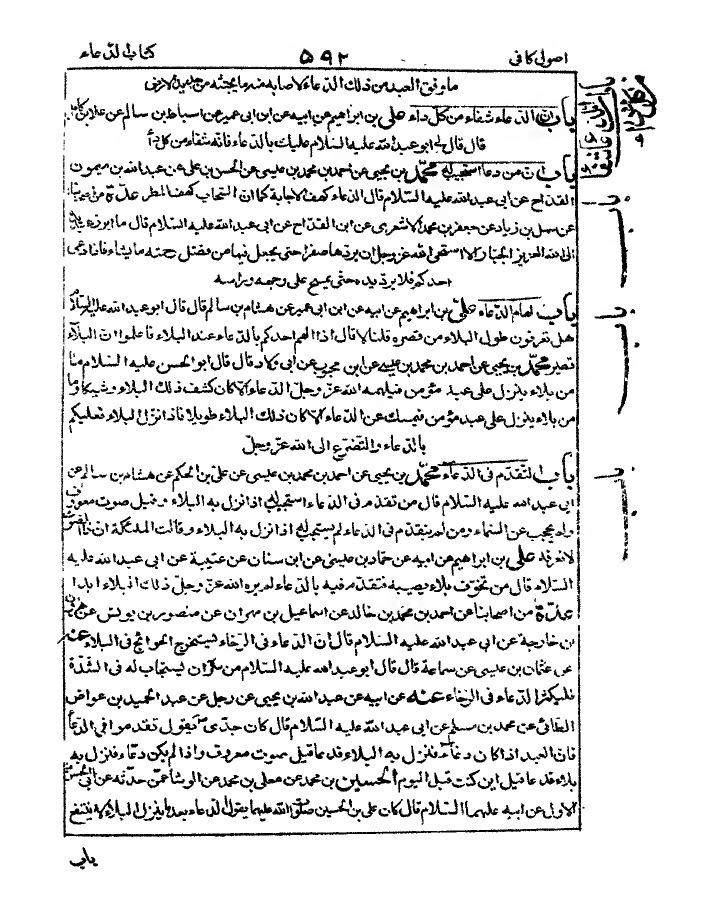 اصول کافی ۵۹۲ کتاب الدعاء
ما وفق العبد من ذلک الدعاء لاصابه منه ما یجثه من جدید الارض
باب ان الدعاء شفاء من کل داء علی بن ابراهیم عن ابیه عن ابن ابی عمیر عن اسباط بن سالم عن علاء بن کامل
قال قال لی ابو عبد الله علیه السلام علیک بالدعاء فانه شفاء من کل داء
باب ان من دعا استجیب له محمد بن یحیی عن احمد بن محمد بن عیسی عن الحسن بن علی عن عبد الله بن میمون
القداح عن ابی عبد الله علیه السلام قال الدعاء کهف الاجابة کما ان السحاب کهف المطر عدة من اصحابنا
عن سهل بن زیاد عن جعفر بن محمد الاشعری عن ابن القداح عن ابی عبد الله علیه السلام قال ما ابرز عبد یده
الی الله العزیز الجبار الا استحیا الله عز وجل ان یردها صفرا حتی یجعل فیها من فضل رحمته ما یشاء فاذا دعی
احدکم فلا یرد یده حتی یمسح علی وجهه وراسه
باب الهام الدعاء علی بن ابراهیم عن ابیه عن ابن ابی عمیر عن هشام بن سالم قال قال ابو عبد الله علیه السلام
هل تعرفون طول البلاء من قصره قلنا لا قال اذا الهم احدکم بالدعاء عند البلاء فاعلموا ان البلاء
قصیر محمد بن یحیی عن احمد بن محمد بن عیسی عن ابن محبوب عن ابی ولاد قال قال ابو الحسن علیه السلام ما
من بلاء ینزل علی عبد مؤمن فیلهمه الله عز وجل الدعاء الا کان کشف ذلک البلاء وشیکا وما
من بلاء ینزل علی عبد مؤمن فیمسک عن الدعاء الا کان ذلک البلاء طویلا فاذا نزل البلاء فعلیکم
بالدعاء والتضرع الی الله عز وجل
باب التقدم فی الدعاء محمد بن یحیی عن احمد بن محمد بن عیسی عن علی بن الحکم عن هشام بن سالم عن
ابی عبد الله علیه السلام قال من تقدم فی الدعاء استجیب له اذا نزل به البلاء وقیل صوت معروف
ولم یحجب عن السماء ومن لم یتقدم فی الدعاء لم یستجب له اذا نزل به البلاء وقالت الملئکة ان ذا الصوت
لا نعرفه علی بن ابراهیم عن ابیه عن حماد بن عیسی عن ابن سنان عن عنبسة عن ابی عبد الله علیه
السلام قال من تخوف بلاء یصیبه فتقدم فیه بالدعاء لم یره الله عز وجل ذلک البلاء ابدا
عدة من اصحابنا عن احمد بن محمد بن خالد عن اسماعیل بن مهران عن منصور بن یونس عن هرون
ابن خارجة عن ابی عبد الله علیه السلام قال ان الدعاء فی الرخاء یستخرج الحوائج فی البلاء عنه
عن عثمان بن عیسی عن سماعة قال قال ابو عبد الله علیه السلام من سره ان یستجاب له فی الشدة
فلیکثر الدعاء فی الرخاء عنه عن ابیه عن عبد الله بن یحیی عن رجل عن عبد الحمید بن عواض
الطائی عن محمد بن مسلم عن ابی عبد الله علیه السلام قال کان جدی یقول تقدموا فی الدعاء
فان العبد اذا کان دعاء فنزل به البلاء فدعا قیل صوت معروف واذا لم یکن دعاء فنزل به
بلاء فدعا قیل این کنت قبل الیوم الحسین بن محمد عن معلی بن محمد عن الوشاء عمن حدثه عن ابی الحسن
الاول عن ابیه علیهما السلام قال کان علی بن الحسین صلوات الله علیهما یقول الدعاء بعد ما ینزل البلاء لا ینتفع
باب